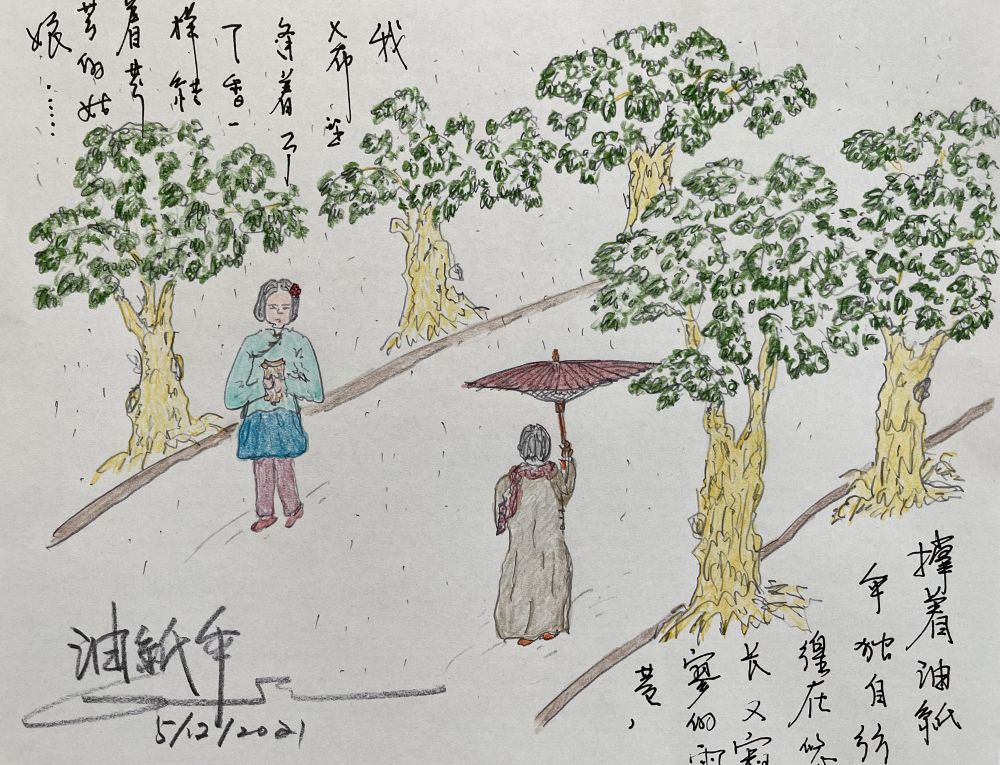 撑着油紙
伞独自彷
徨在悠
长又寂
寥的雨
巷，
我
希望
逢着
丁香一
样結
着
的姑
娘……
油紙伞
5/12/2021